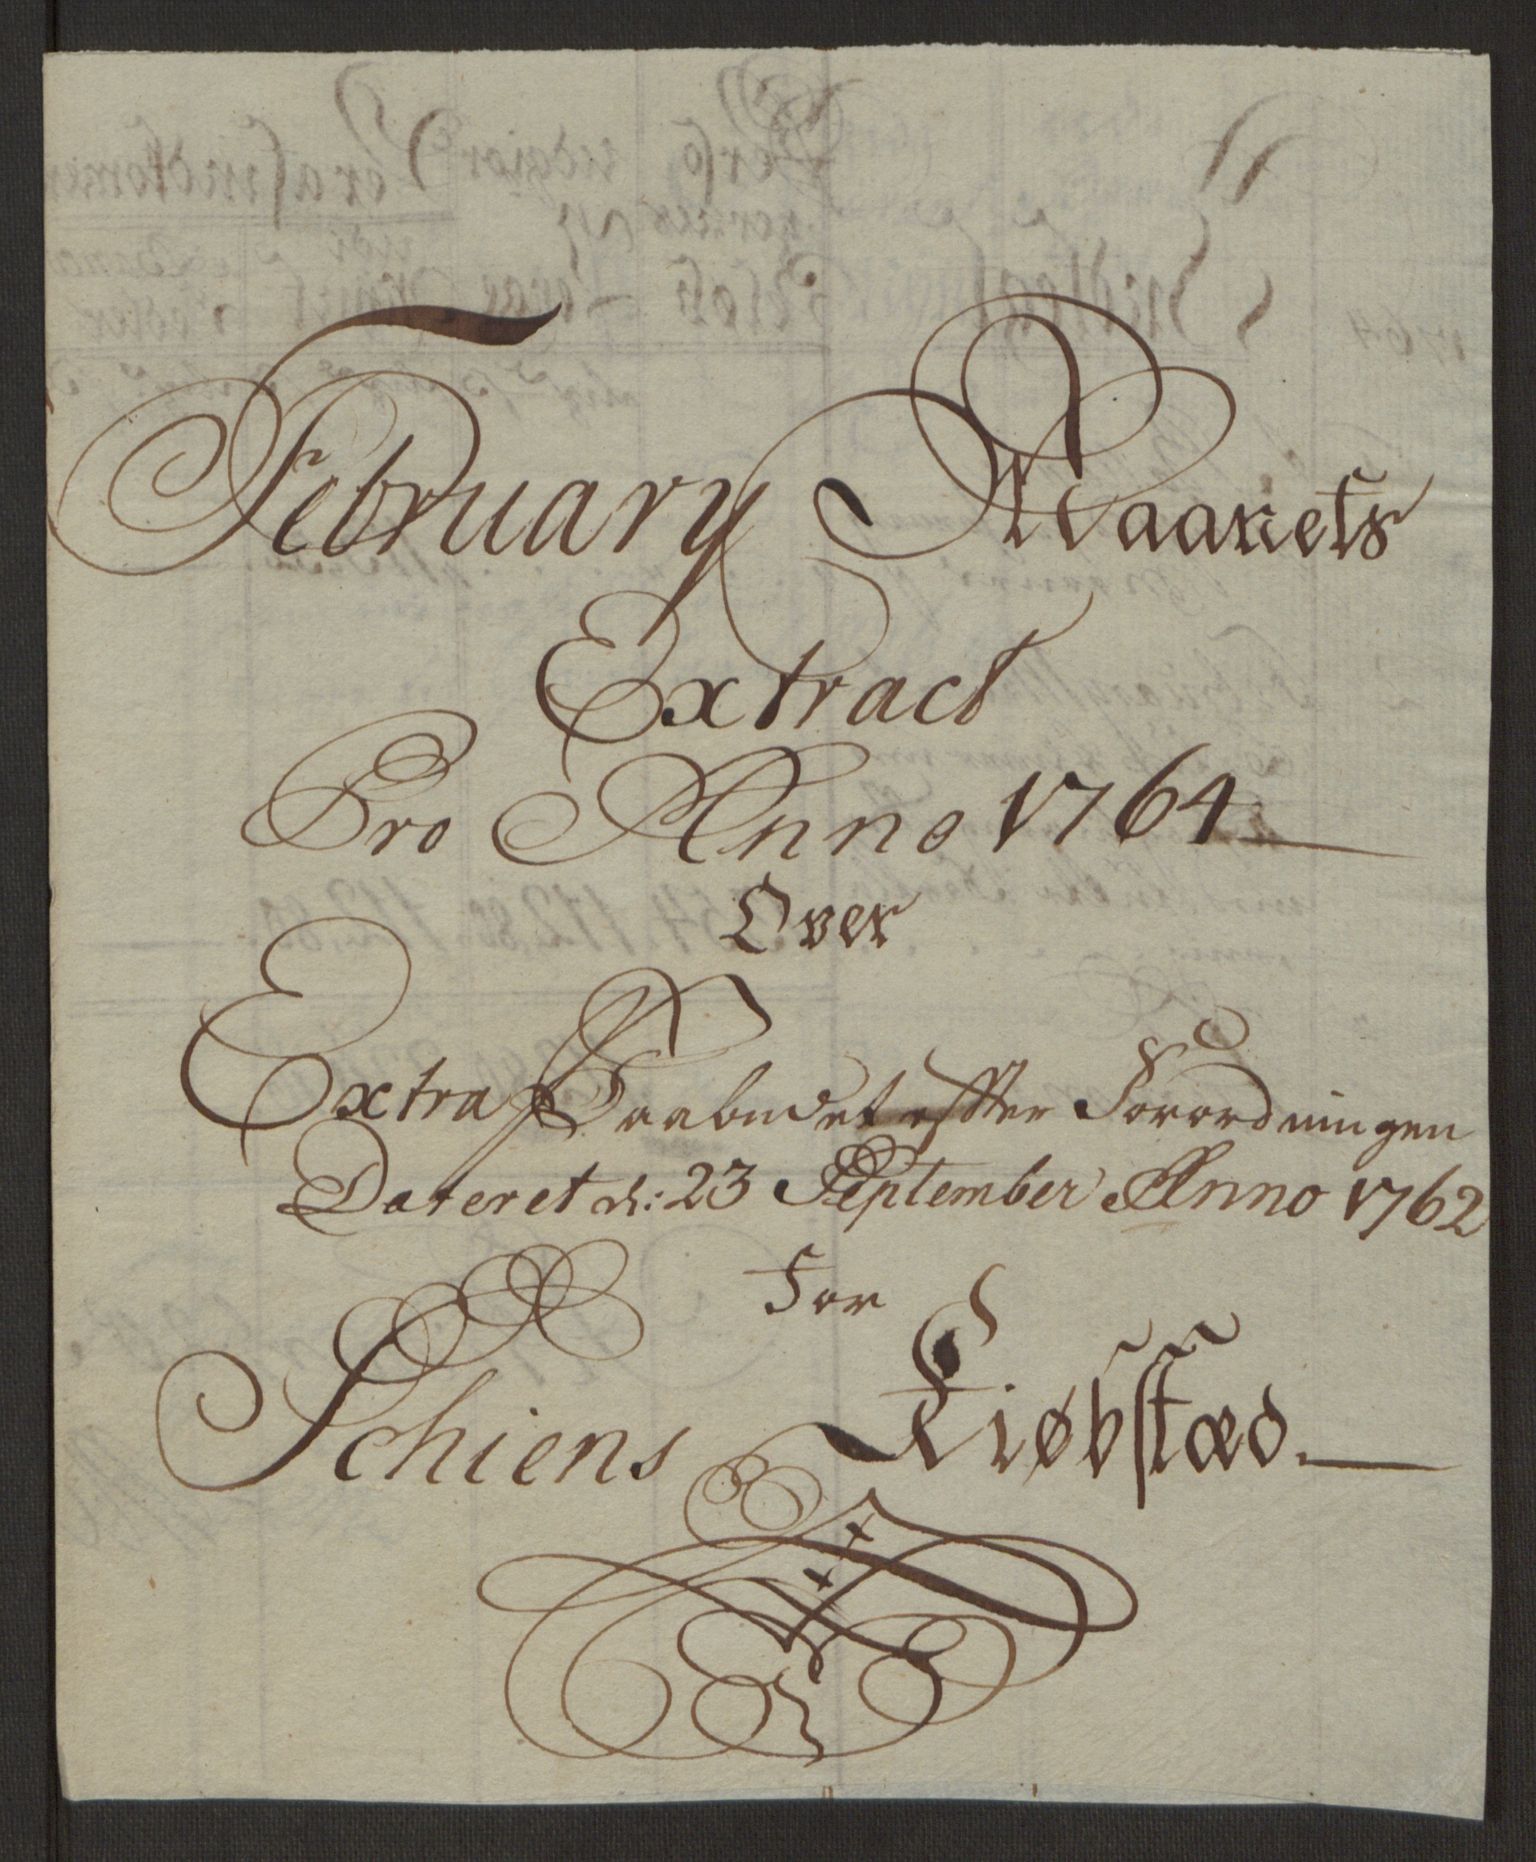 February Maanets
Extract
Pro Anno 1764
Over
Extra Paabudet efter Forordningen
Dateret d: 23 September Anno 1762
For
Schiens Kiøbstæd